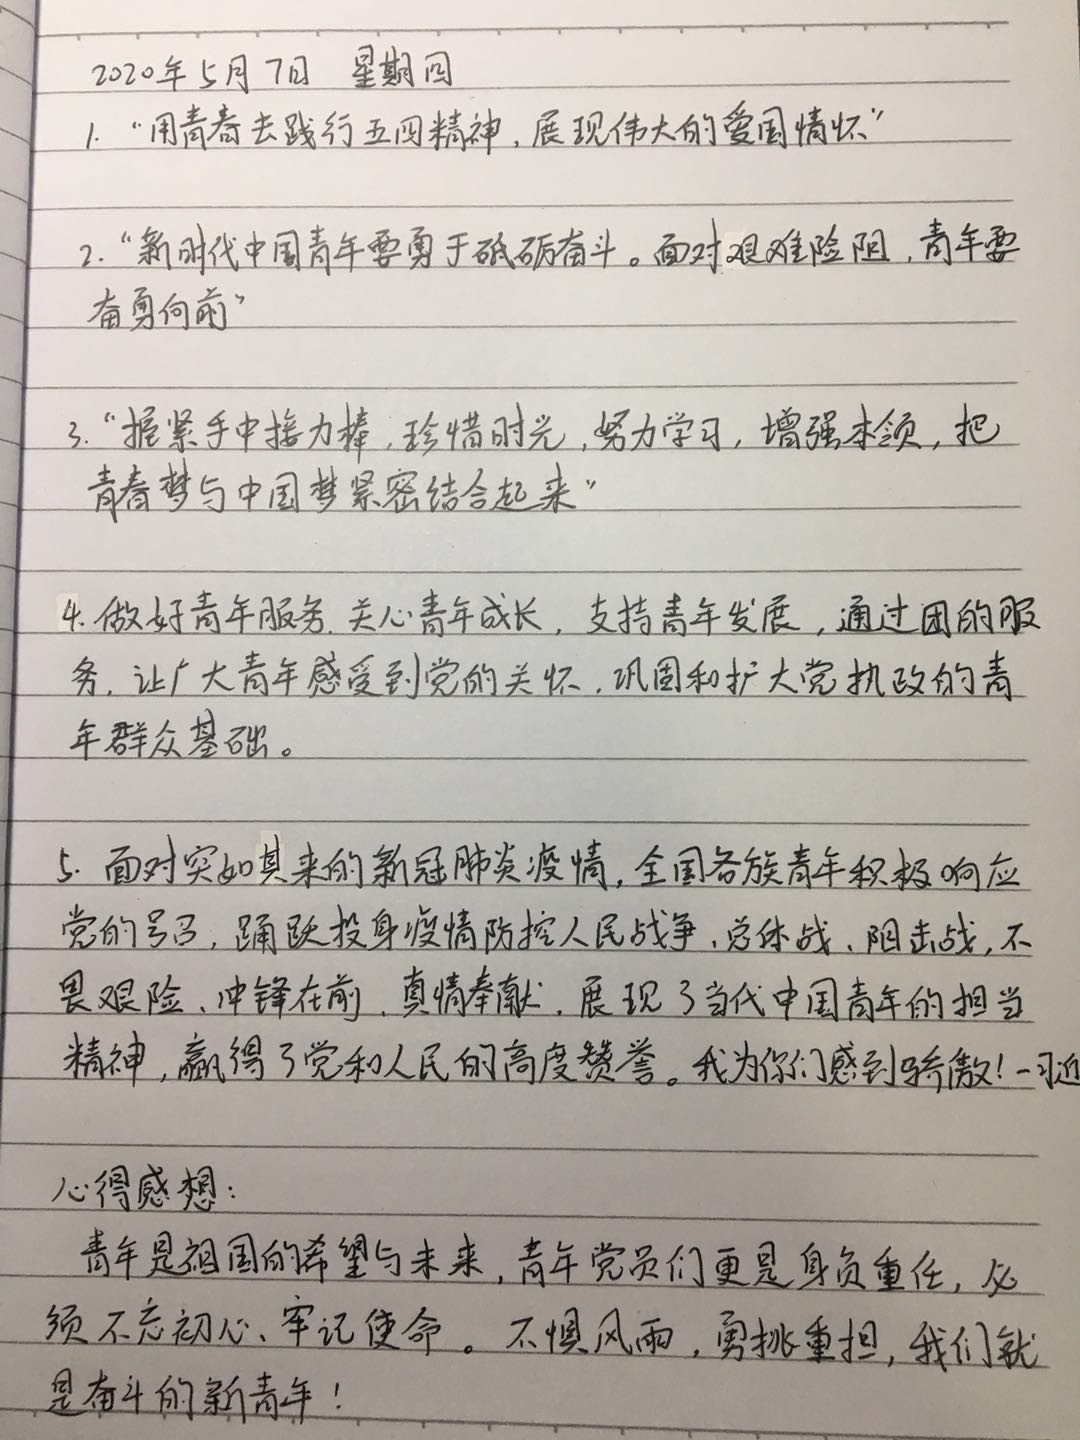 2020年5月7日 星期四
1. “用青春去践行五四精神，展现伟大的爱国情怀”
2. “新时代中国青年要勇于砥砺奋斗。面对艰难险阻，青年要
奋勇向前”
3. “握紧手中接力棒，珍惜时光，努力学习，增强本领，把
青春梦与中国梦紧密结合起来”
4. 做好青年服务、关心青年成长，支持青年发展，通过团的服
务，让广大青年感受到党的关怀，巩固和扩大党执政的青
年群众基础。
5. 面对突如其来的新冠肺炎疫情，全国各族青年积极响应
党的号召，踊跃投身疫情防控人民战争、总体战、阻击战，不
畏艰险、冲锋在前、真情奉献，展现了当代中国青年的担当
精神，赢得了党和人民的高度赞誉。我为你们感到骄傲！—习近
心得感想：
青年是祖国的希望与未来，青年党员们更是身负重任，必
须不忘初心、牢记使命。不惧风雨，勇挑重担，我们就
是奋斗的新青年！